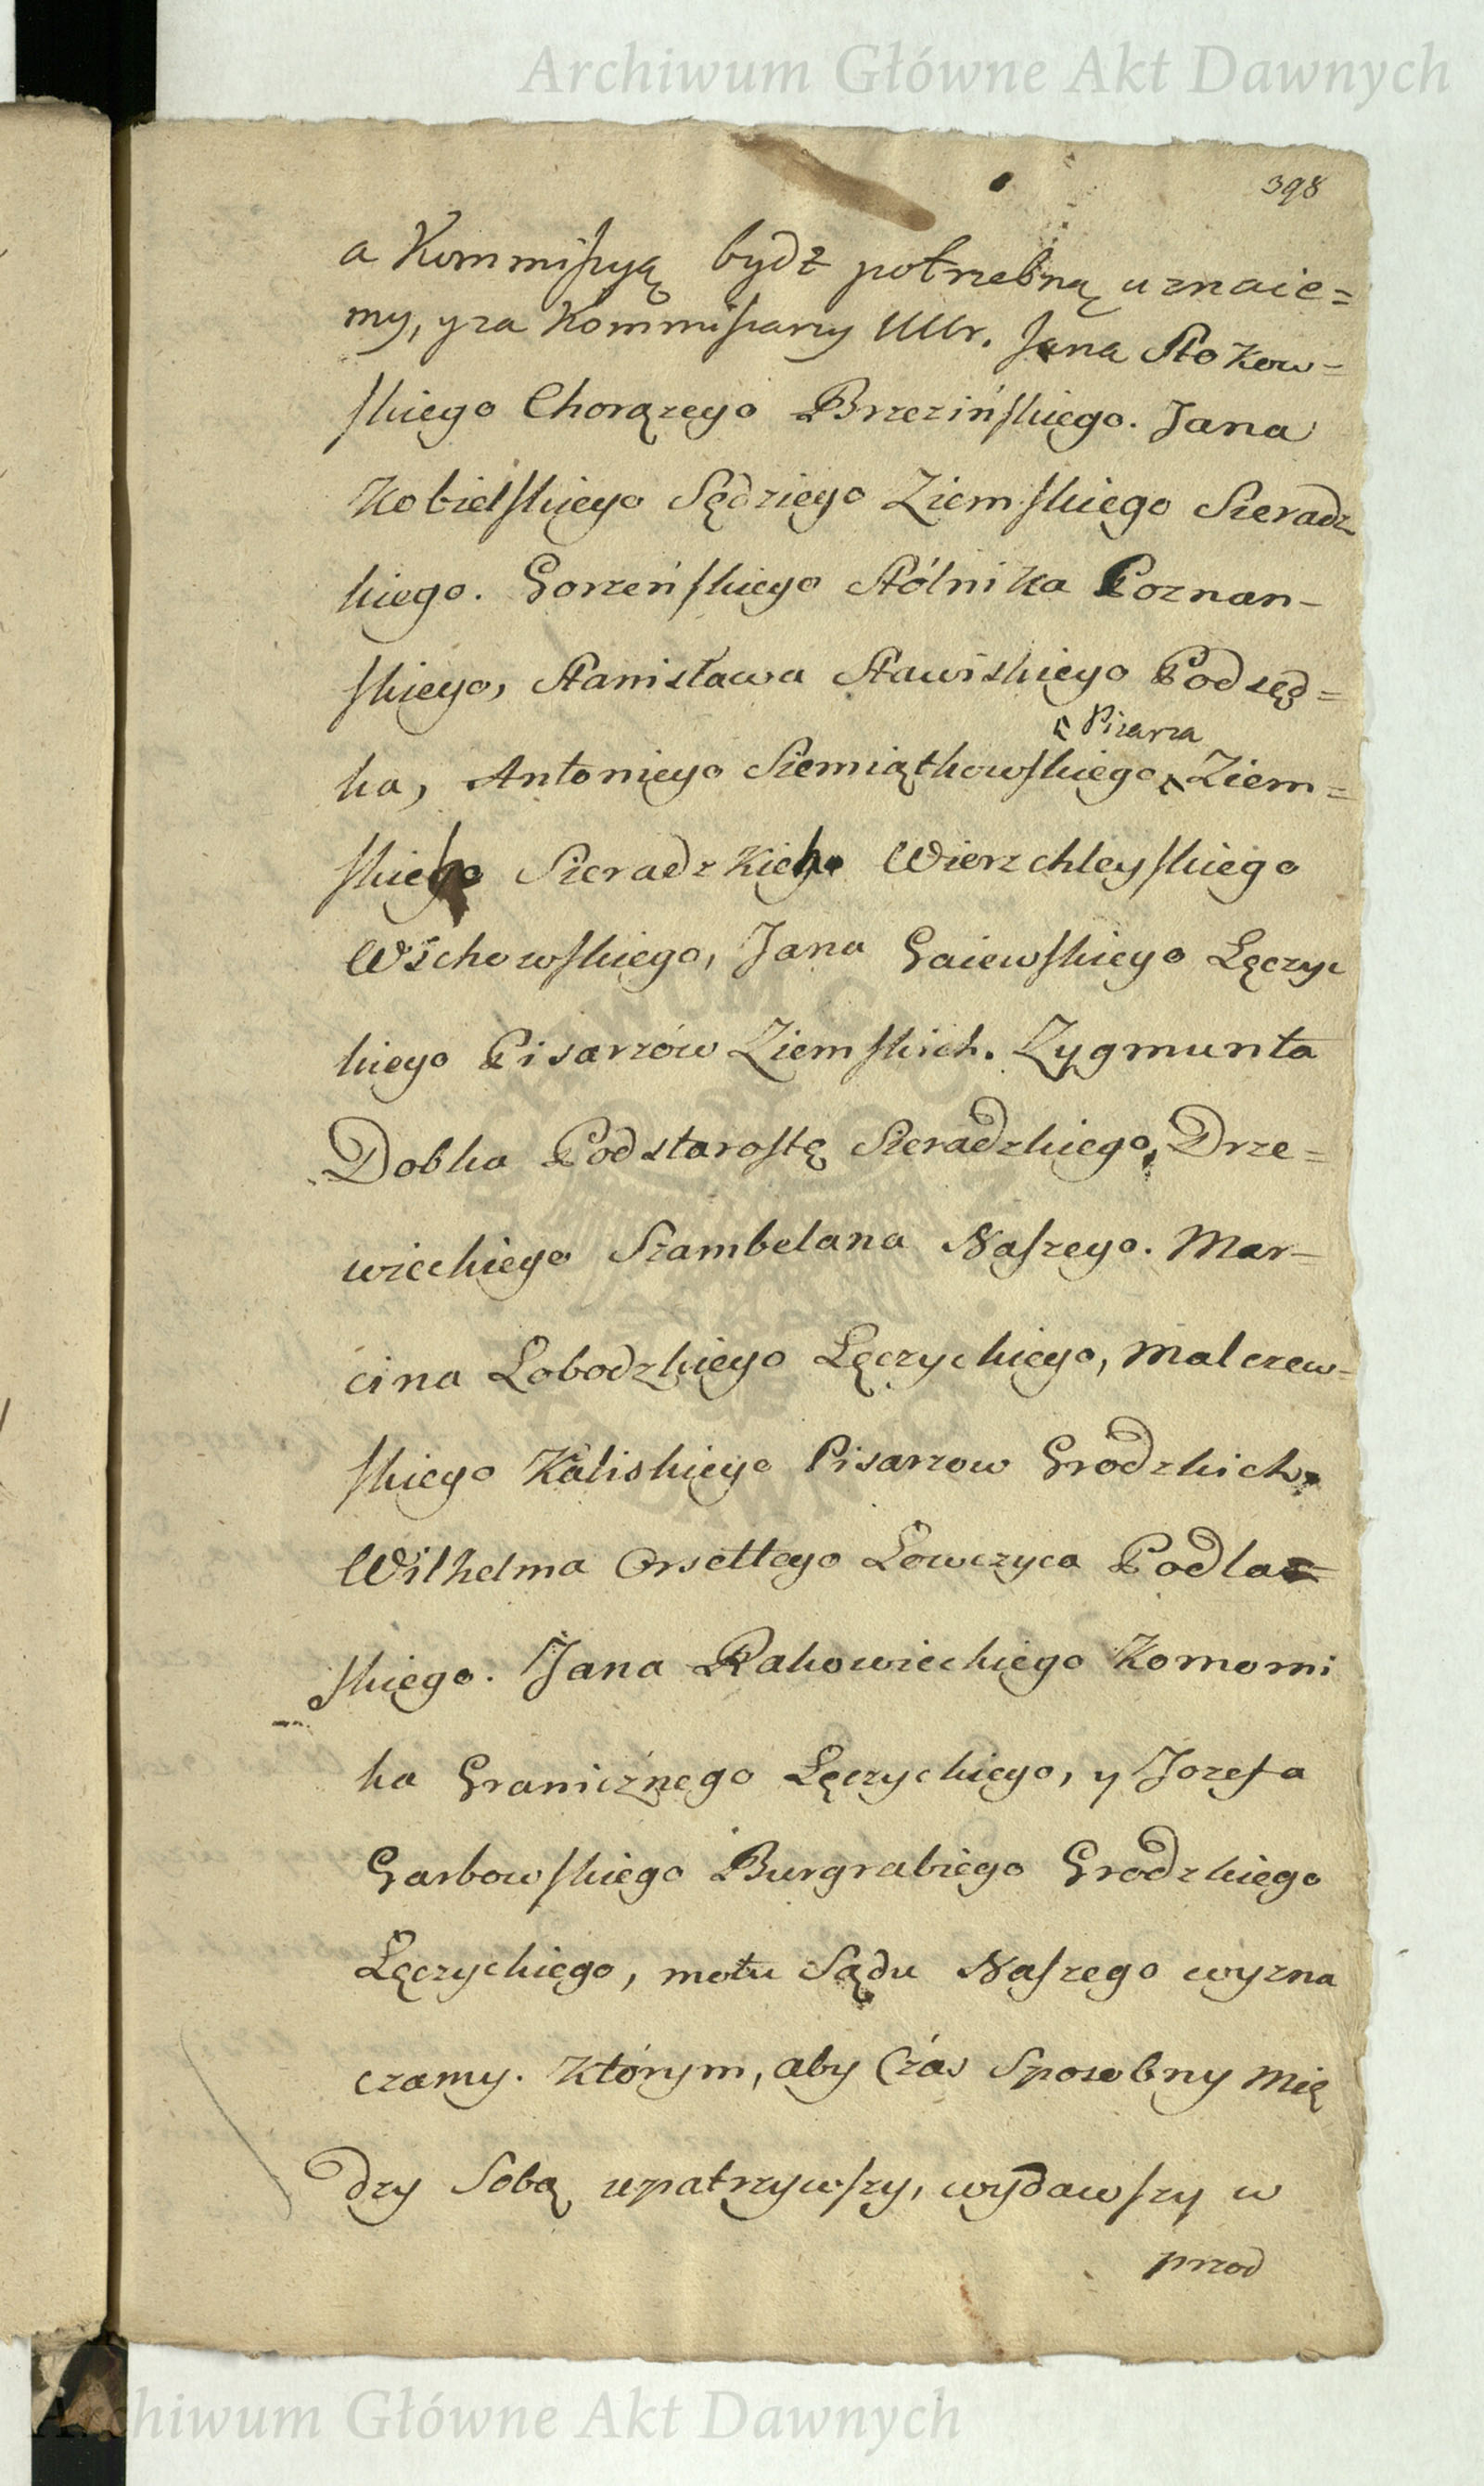 Archiwum Główne Akt Dawnych
398
a Kommissyą bydz potrzebną uznaie=
my, y za Kommissarzy Ullr. Jana Stokow=
skiego Chorązego Brzezińskiego. Jana
Kobielskiego Sędziego Ziemskiego Sieradz
kiego. Gorzeńskiego Stólnika Poznan-
skiego, Stanisława Stawiskiego Podsęd=
Pisarza
ka, Antoniego Siemiątkowskiego Ziem=
skiego Sieradzkiego Wierzchleyskiego
Wschowskiego, Jana Gaiewskiego Łęczyc
kiego Pisarzów Ziemskich. Zygmunta
Dobka Podstarostę Sieradzkiego, Drze=
wieckiego Szambelana Naszego. Mar=
cina Lobodzkiego Łęczyckiego, Malczew=
skiego Kaliskiego Pisarzow Grodzkich,
Wilhelma Orsettego Łowczyca Podla=
skiego. Jana Rakowieckiego Komorni
ka Granicznego Łęczyckiego, y Jozefa
Garbowskiego Burgrabiego Grodzkiego
Łęczyckiego, motu Sądu Naszego wyzna
czamy. Którym, aby Czas Sposobny Mię
dzy Sobą upatrzywszy, wydawszy w
przod
Archiwum Główne Akt Dawnych